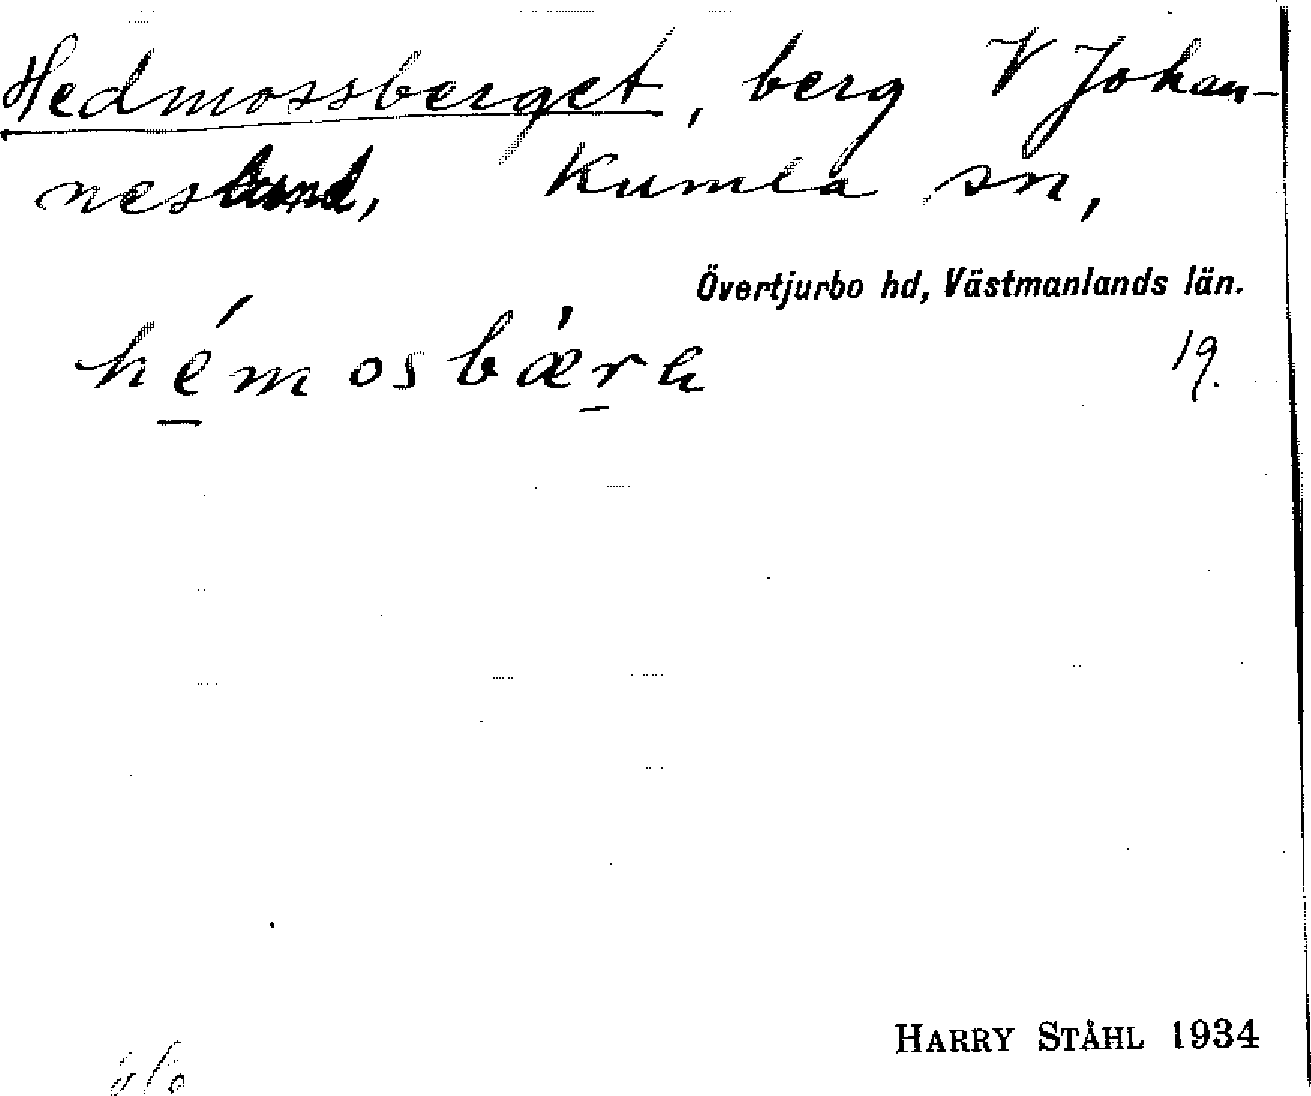 Hedmossberget, berg V Johan-
nesland, Kumla sn,
Övertjurbo hd, Västmanlands län.
hémosbæ̀rɛ 19.
HARRY STÅHL 1934